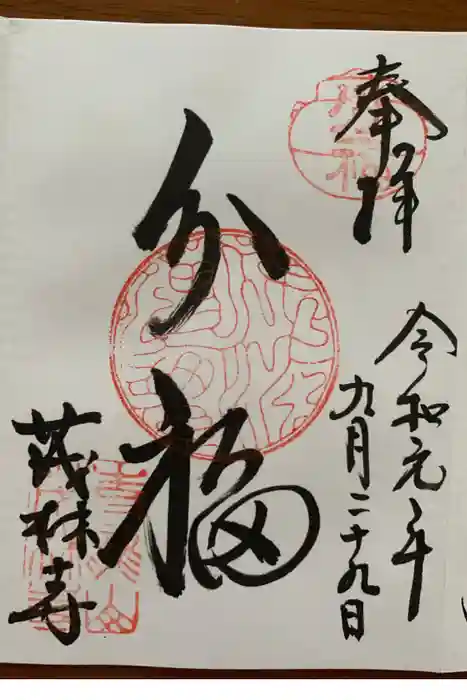 奉拝
令和元年
九月二十九日
分福
茂林寺